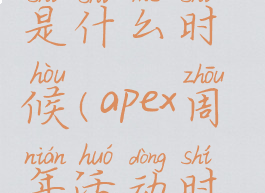 是什么时
hòu zhōu
候(apex周
nián huó dòng shí
年活动时